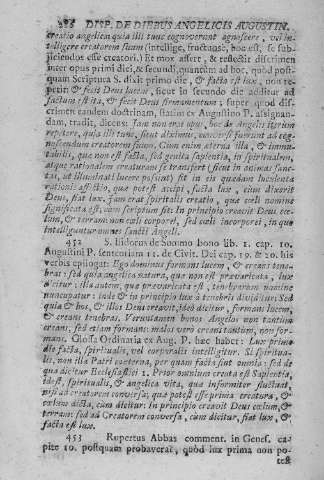 286 DISP. DE DIEBUS ANGELICIS AUGUSTIN.
creatio angelica quia illi tunc cognoverunt agnoscere, vel in-
telligere creatorem suum (intellige, fructuose, hoc est, se sub-
jiciendos esse creatori.) Et mox assert, & reflectit discrimen
inter opus primi diei, & secundi, quantum ad hoc, quòd post-
quam Scriptura S. dixit primo die, & facta est lux, non re-
petit: & fecit Deus lucem, sicut in secundo die additur ad
factum est ita, & fecit Deus firmamentum; super quod dis-
crimen eandem doctrinam, statim ex Augustino P. assignan-
dam, tradit, dicens: Jam non erat opus, hoc de Angelis iterum
repetere, quia illi tunc, sicut diximus, conversi fuerunt ad reg-
noscendum creatorem suum. Cum enim æterna illa, & immu-
tabilis, quæ non est facta, sed genita sapientia, in spiritualem,
atque rationalem creaturam se transfert (sicut in animas sanc-
tas, ut illuminati lucere possint) fit in eis quædam luculenta
rationis affectio, quæ potest accipi, facta lux, cum dixerit
Deus, fiat lux. Jam erat spiritalis creatio, quæ cœli nomine
significata est, cum scriptum sit: In principio creavit Deus cœ-
lum, & terram non cœli corporei, sed cœli incorporei, in quo
intelliguntur omnes sancti Angeli.
452 S. Isidorus de Summo bono lib. 1. cap. 10.
Augustini P. sententiam 11. de Civit. Dei cap. 19. & 20. his
verbis epilogat: Ego dominus formans lucem, & creans tene-
bras: sed quia angelica natura, quæ non est prævaricata, lux
dicitur: illa autem, quæ prævaricata est, tenebrarum nomine
nuncupatur: inde & in principio lux à tenebris dividitur: Sed
quia & hos, & illos Deus creavit, ideò dicitur, formans lucem,
& creans tenebras. Verumtamen bonos Angelos non tantùm
creans, sed etiam formans: malos verò creans tantùm, non for-
mans. Glossa Ordinatia ex Aug. P. hæc habet: Lux primo
die facta, spiritualis, vel corporalis intelligitur. Si spiritua-
lis, non illa Patri coæterna, per quam facta sunt omnia: sed de
qua dicitur Ecclesiastici 1. Prior omnium creata est Sapientia,
idest, spiritualis, & angelica vita, quæ informiter fluctuat,
nisi ad creatorem conversa, quæ potest esse prima creatura, &
cœlum dicta, cùm dicitur: In principio creavit Deus cœlum, &
terram: sed ad Creatorem conversa, cùm dicitur, fiat lux, &
facta est lux.
453 Rupertus Abbas comment. in Genes. ca-
pite 10. postquam probaverat, quòd lux prima non po-
test